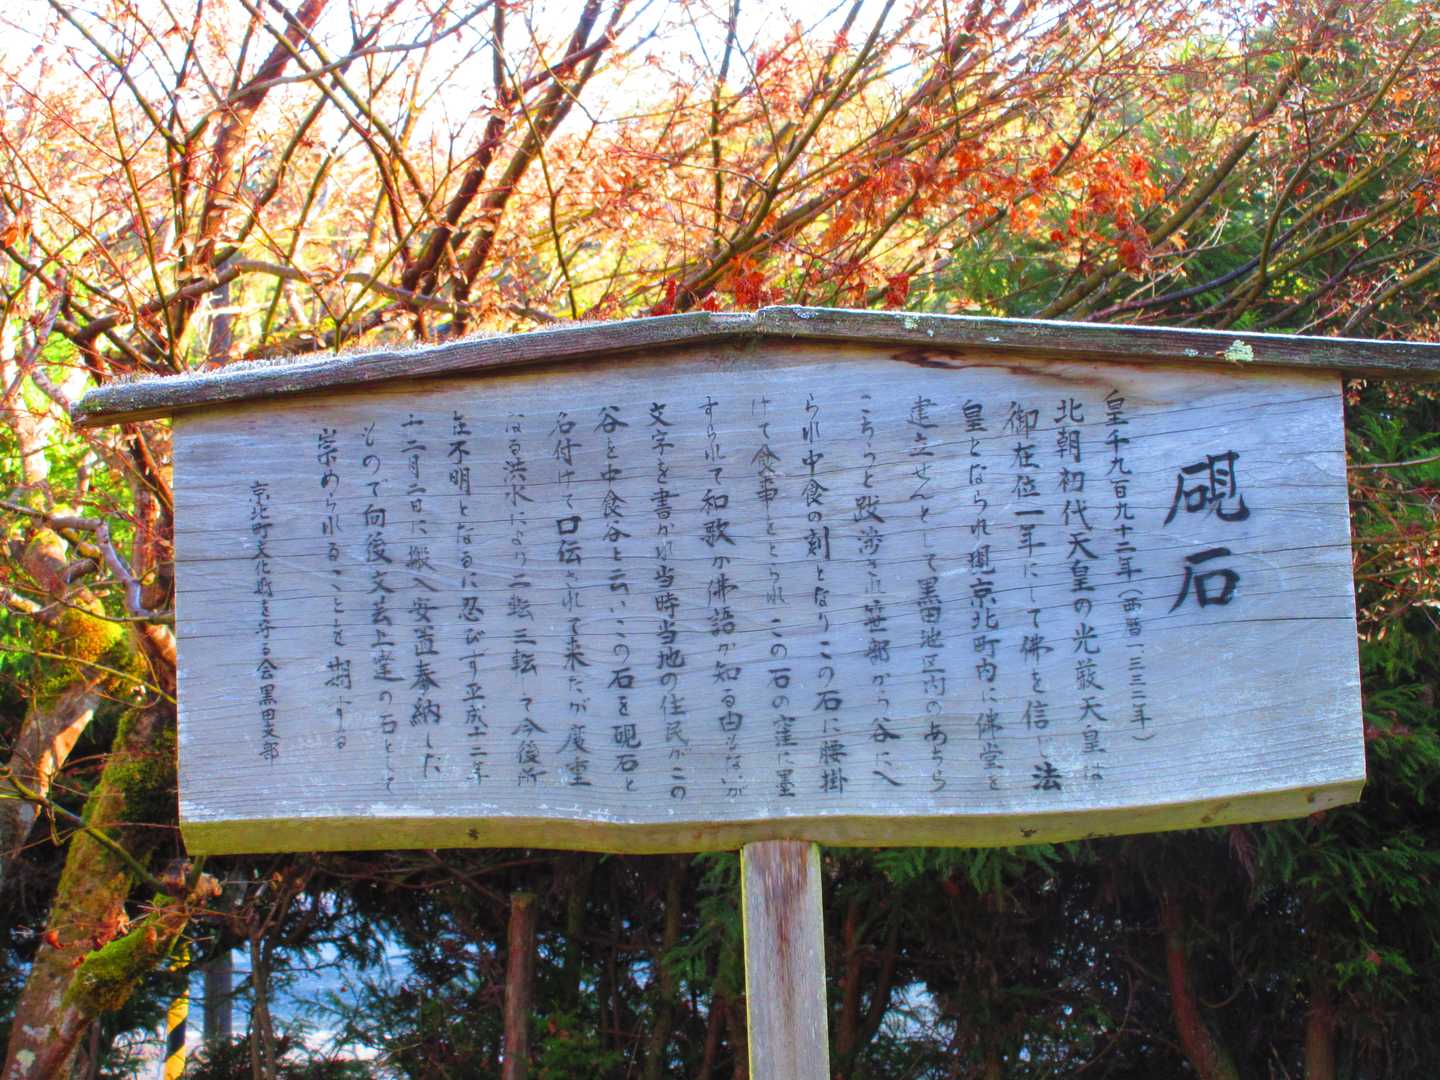 硯石
皇千九百九十二年（西暦一、三三二年）
北朝初代天皇の光厳天皇は
御在位一年にして佛を信じ法
皇となられ現京北町内に佛堂を
建立せんとして黒田池区内のあちら
こちらと跋渉され笹部から谷に入
られ中食の刻となりこの石に腰掛
けて食事をとられ この石の窪に墨
すられて和歌か佛語か知る由もないが
文字を書かれ当時当地の住民がこの
谷を中食谷と云いこの石を硯石と
名付けて口伝されて来たが度重
なる洪水により二転三転して今後所
在不明となるに忍びず平成十二年
十二月二日に搬入安置奉納した
もので向後文芸上達の石として
崇められることを期する
京北町文化財を守る会黒田支部